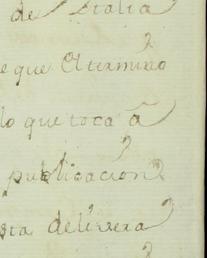 de Italia
e que El termino
lo que toca â
publicacion
sta delivera